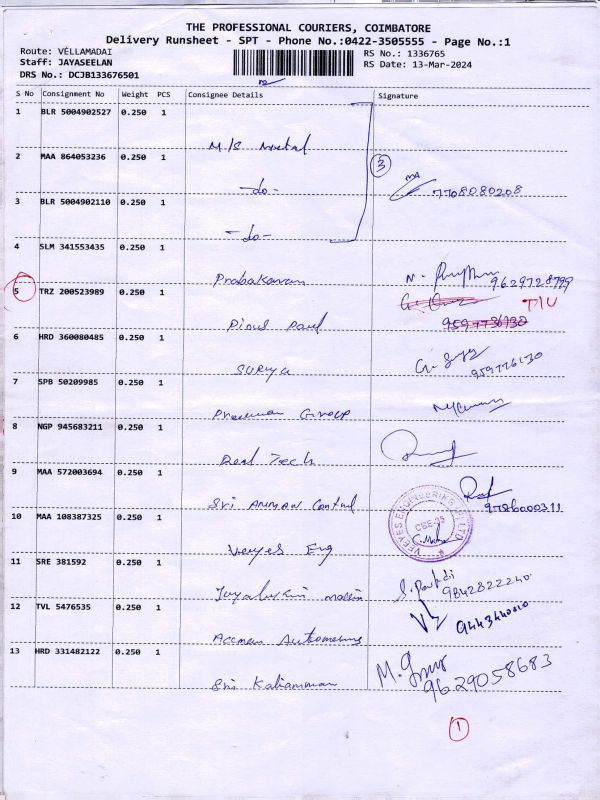 THE PROFESSIONAL COURIERS, COIMBATORE
Delivery Runsheet - SPT - Phone No.:0422-3505555 - Page No.:1
Route: VELLAMADAI
RS No.: 1336765
Staff: JAYASEELAN
RS Date: 13-Mar-2024
DRS No.: DCJB133676501
S No Consignment No Weight PCS Consignee Details Signature
1 BLR 5004902527 0.250 1
M/S Metal
2 MAA 864053236 0.250 1
3
-do-
7708080208
3 BLR 5004902110 0.250 1
-do-
4 SLM 341553435 0.250 1
Prabakaran
9629728799
5 TRZ 200523989 0.250 1
T/U
Pious Paul
9597736130
6 HRD 360080485 0.250 1
Surya
959776130
7 SPB 50209985 0.250 1
Group
8 NGP 945683211 0.250 1
Real Tech
9 MAA 572003694 0.250 1
Sri Amman
9786000311
10 MAA 108387325 0.250 1
VEEYES ENGINEERING LTD
CBE-35
Veeyes Eng
11 SRE 381592 0.250 1
9842822240
12 TVL 5476535 0.250 1
13 HRD 331482122 0.250 1
Sri Kaliamman
9629058683
1